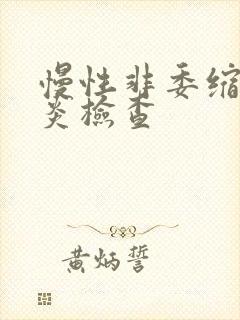 慢性非委缩
炎檢查
黄炳誓